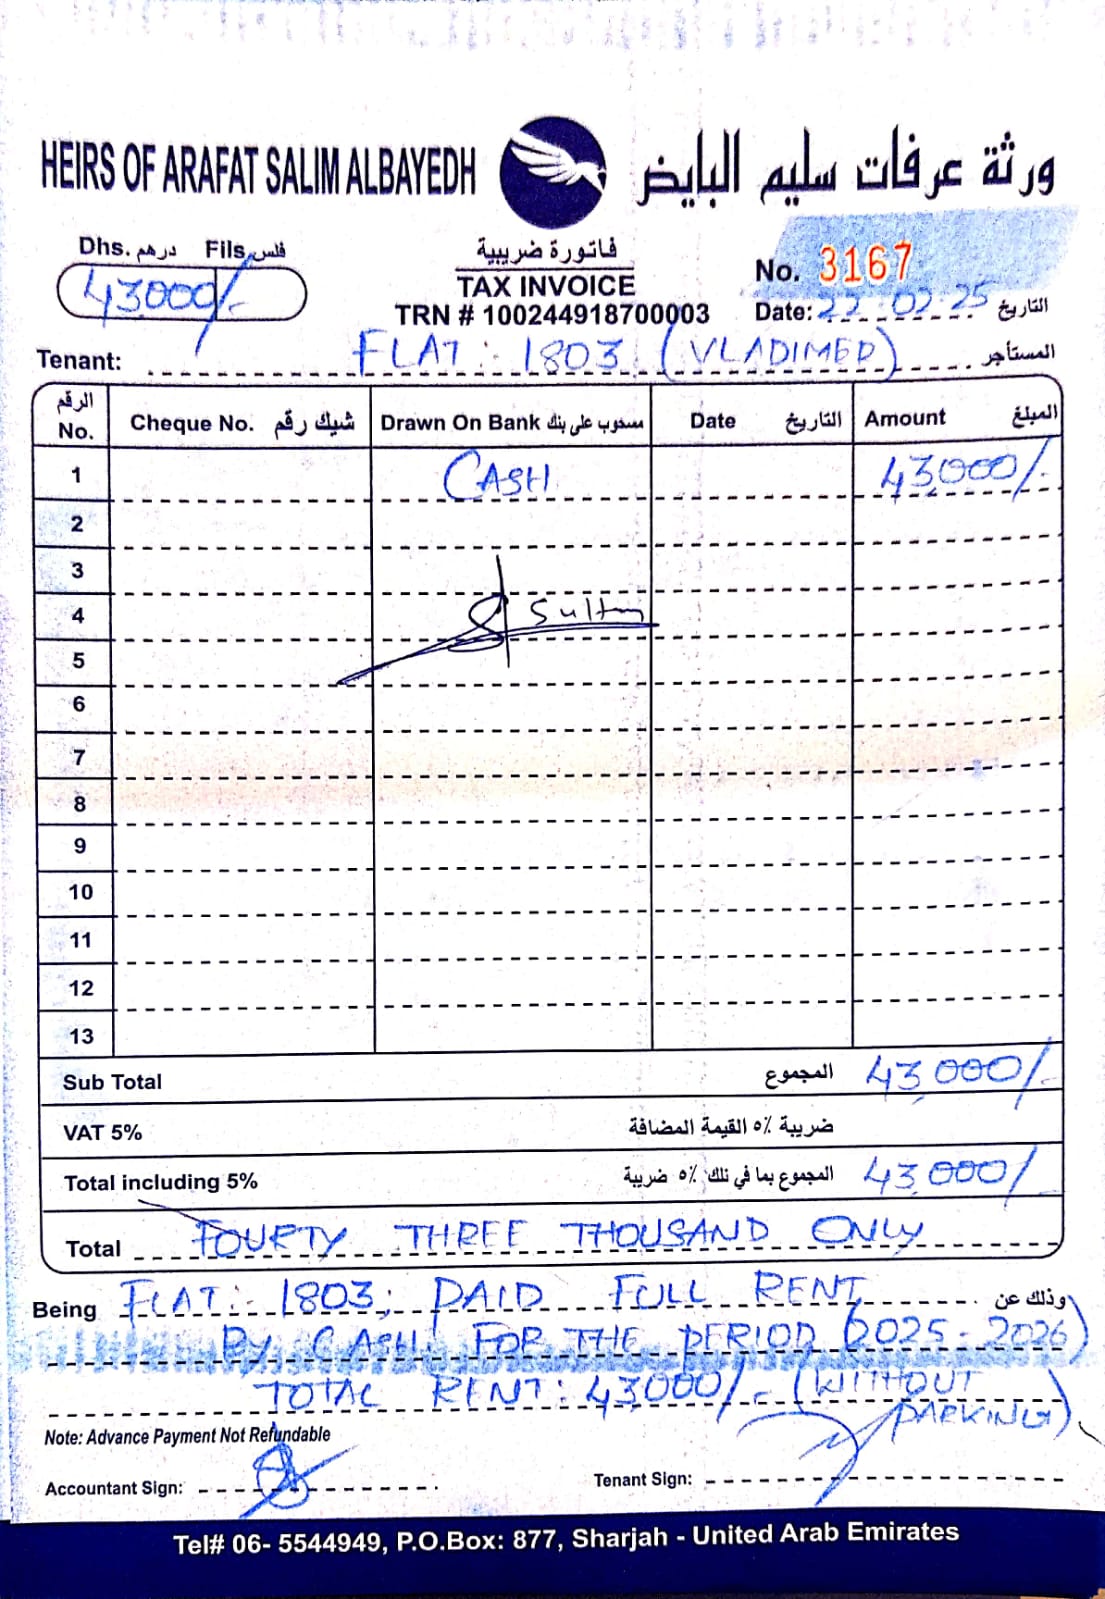 HEIRS OF ARAFAT SALIM ALBAYEDH ورثة عرفات سليم البايض
Dhs. درهم Fils. فلس
43,000/-
فاتورة ضريبية
TAX INVOICE
TRN # 100244918700003
No. 3167
Date: 22-02-25 التاريخ
Tenant: FLAT: 1803 (VLADIMED) المستأجر
الرقم No. Cheque No. شيك رقم Drawn On Bank مسحوب على بنك Date التاريخ Amount المبلغ
1 CASH 43,000/-
2
3
4 Sultan
5
6
7
8
9
10
11
12
13
Sub Total المجموع 43,000/-
VAT 5% ضريبة ٥٪ القيمة المضافة
Total including 5% المجموع بما في ذلك ٥٪ ضريبة 43,000/-
Total FOURTY THREE THOUSAND ONLY
Being FLAT:- 1803; PAID FULL RENT وذلك عن
By CASH FOR THE PERIOD (2025-2026)
TOTAL RENT: 43,000/- (WITHOUT PARKING)
Note: Advance Payment Not Refundable
Accountant Sign: Tenant Sign:
Tel# 06- 5544949, P.O.Box: 877, Sharjah - United Arab Emirates